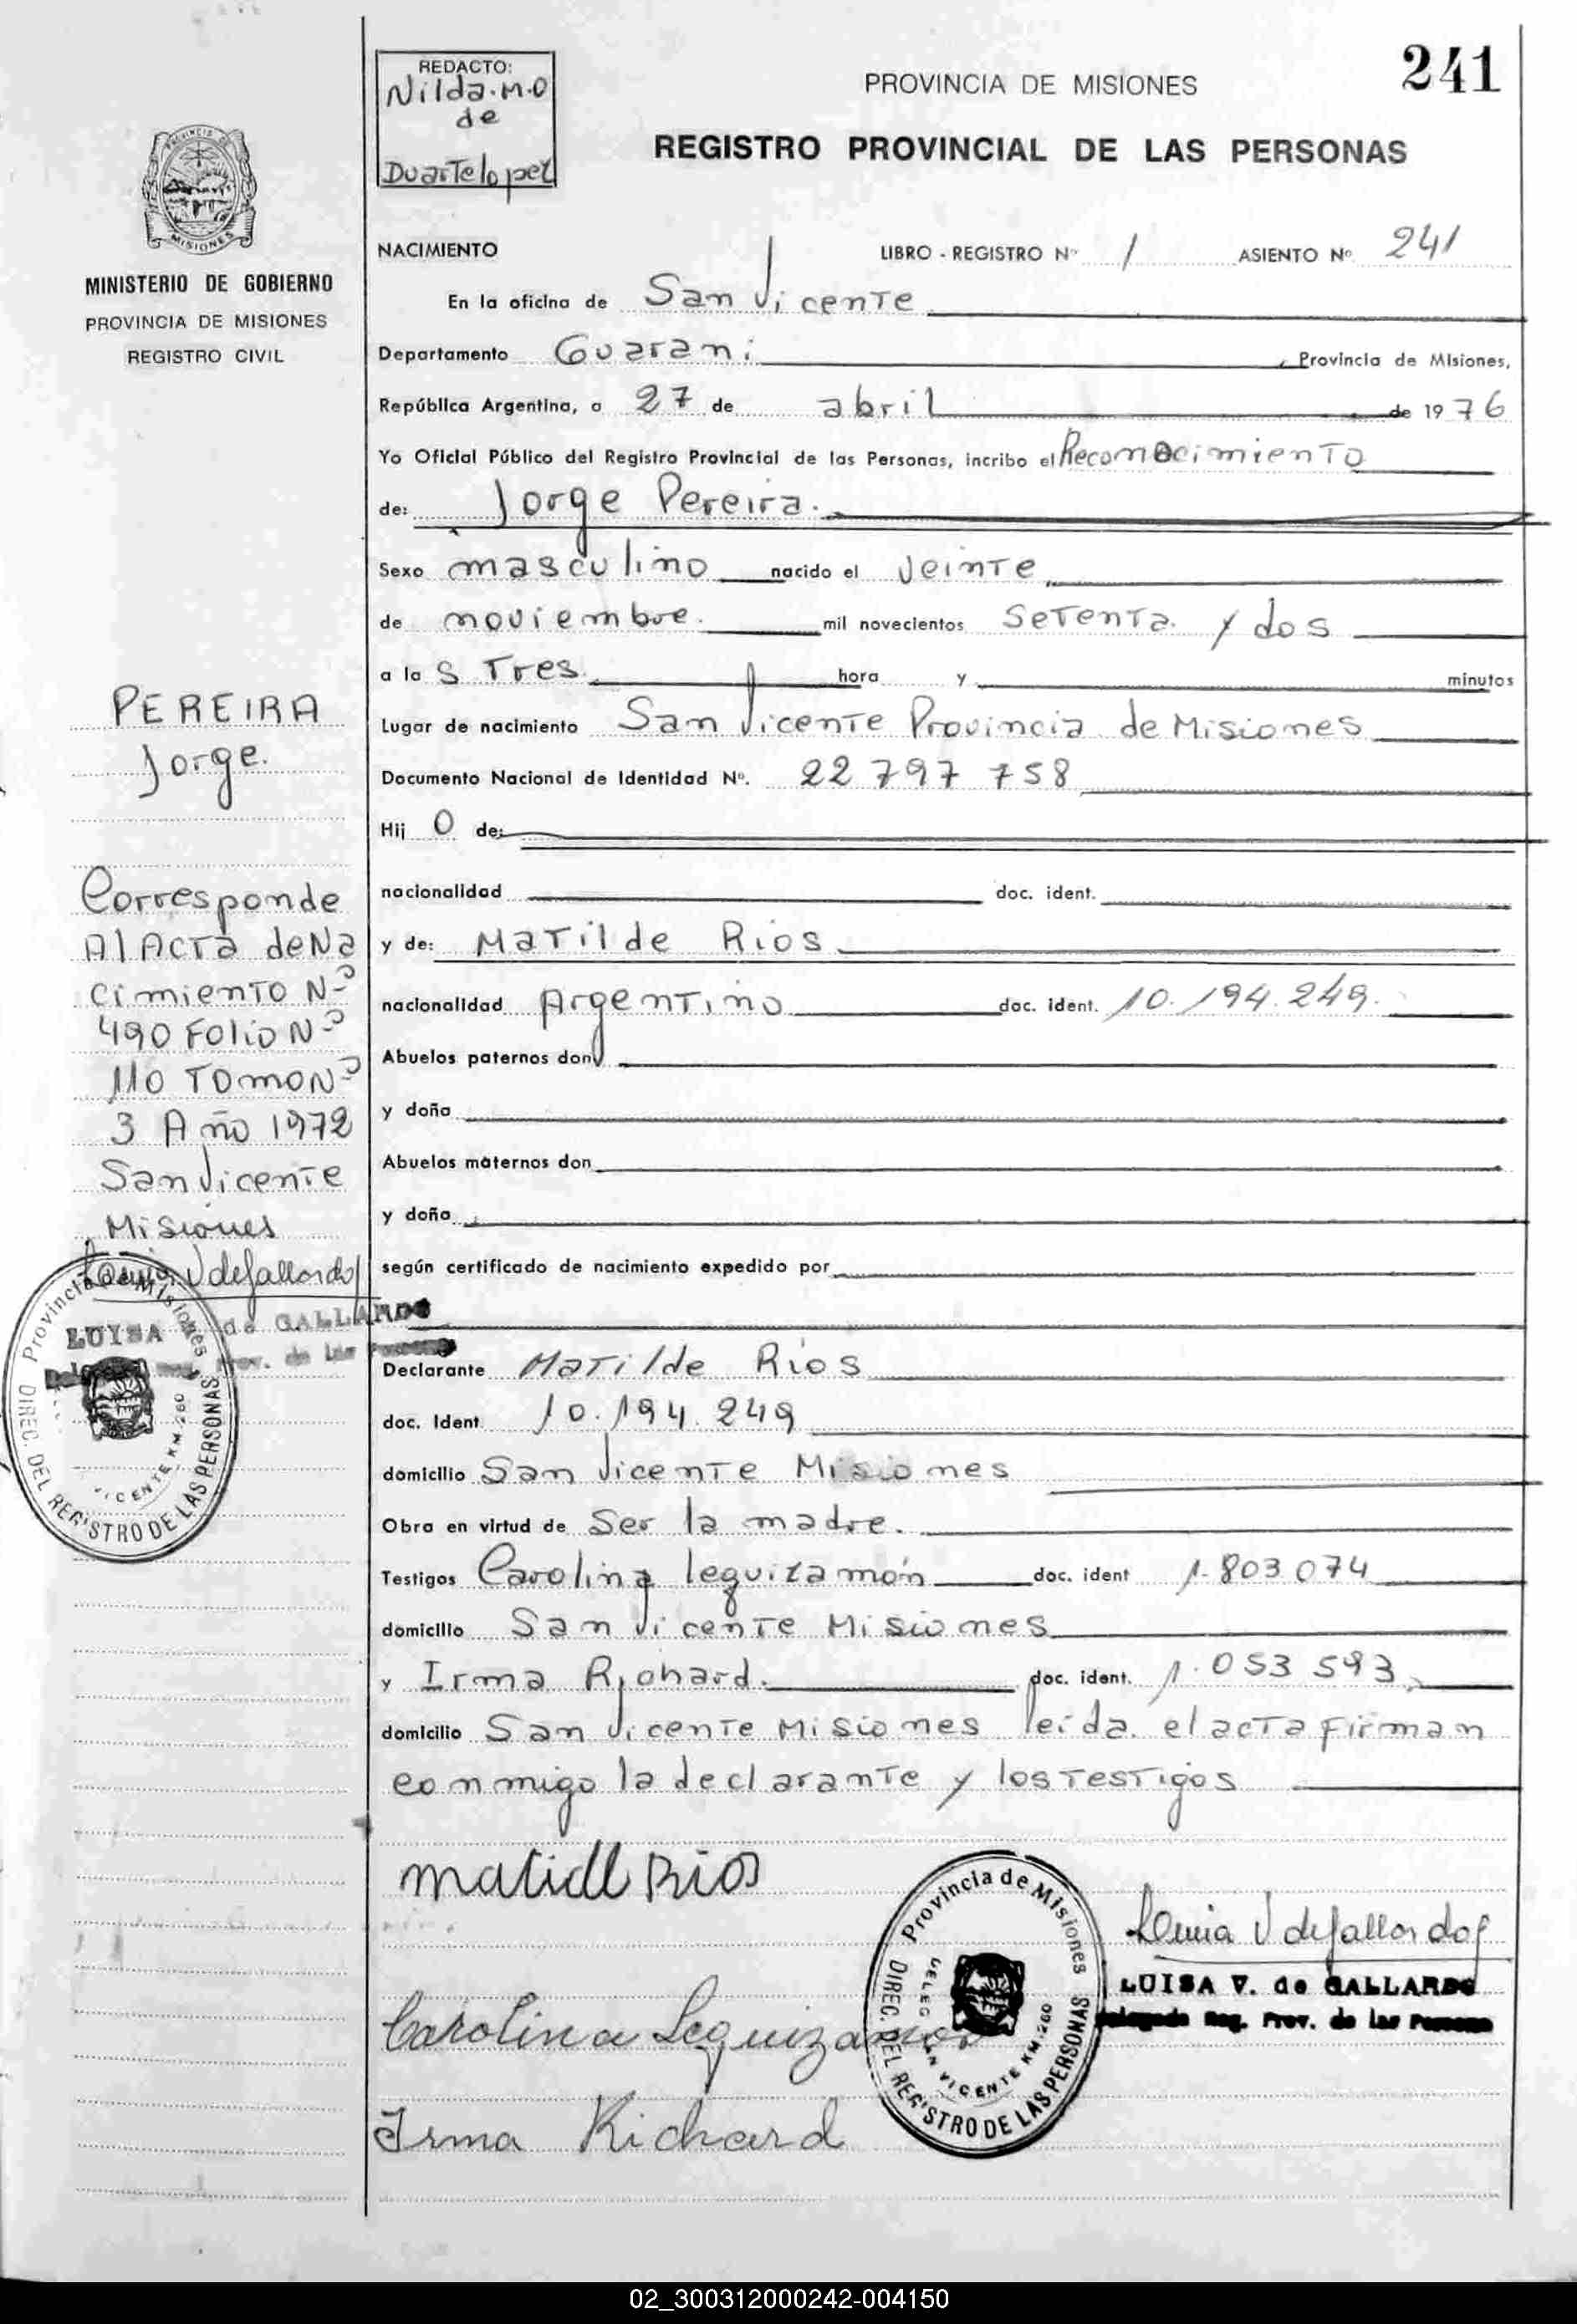 241
REDACTO:
Nilda.M.O
de
Duartelopez
PROVINCIA DE MISIONES
REGISTRO PROVINCIAL DE LAS PERSONAS
MISIONES
MINISTERIO DE GOBIERNO
PROVINCIA DE MISIONES
REGISTRO CIVIL
NACIMIENTO LIBRO - REGISTRO Nº 1 ASIENTO Nº 241
En la oficina de San Vicente
Departamento Guarani, Provincia de Misiones,
República Argentina, a 27 de abril de 1976
Yo Oficial Público del Registro Provincial de las Personas, incribo el Reconocimiento
de: Jorge Pereira.
Sexo masculino nacido el Veinte
de noviembre. mil novecientos Setenta y dos
a la s Tres hora y minutos
Lugar de nacimiento San Vicente Provincia de Misiones
Documento Nacional de Identidad Nº. 22 797 758
Hij o de:
nacionalidad doc. ident.
y de: Matilde Rios
nacionalidad Argentino doc. ident. 10.194.249.
Abuelos paternos don
y doña
Abuelos maternos don
y doña
según certificado de nacimiento expedido por
Declarante Matilde Rios
doc. Ident. 10.194.249
domicilio San Vicente Misiones
Obra en virtud de Ser la madre.
Testigos Carolina leguizamón doc. ident 1.803.074
domicilio San Vicente Misiones
y Irma Richard. doc. ident. 1.053 593
domicilio San Vicente Misiones leida el acta firman
conmigo la declarante y los testigos
PEREIRA
Jorge.
Corresponde
Al Acta de Na
cimiento Nº
490 Folio Nº
110 Tomo Nº
3 Año 1972
San Vicente
Misiones
LUISA V. de GALLARDO
Provincia de Misiones
DIREC. DEL REGISTRO DE LAS PERSONAS
VICENTE KM.260
Matilde Rios
Carolina Leguizamon
Irma Richard
Provincia de Misiones
DIREC. DEL REGISTRO DE LAS PERSONAS
DELEG. SAN VICENTE KM.260
Luisa V de Gallardo
LUISA V. de GALLARDO
Delegada Reg. Prov. de las Personas
02_300312000242-004150